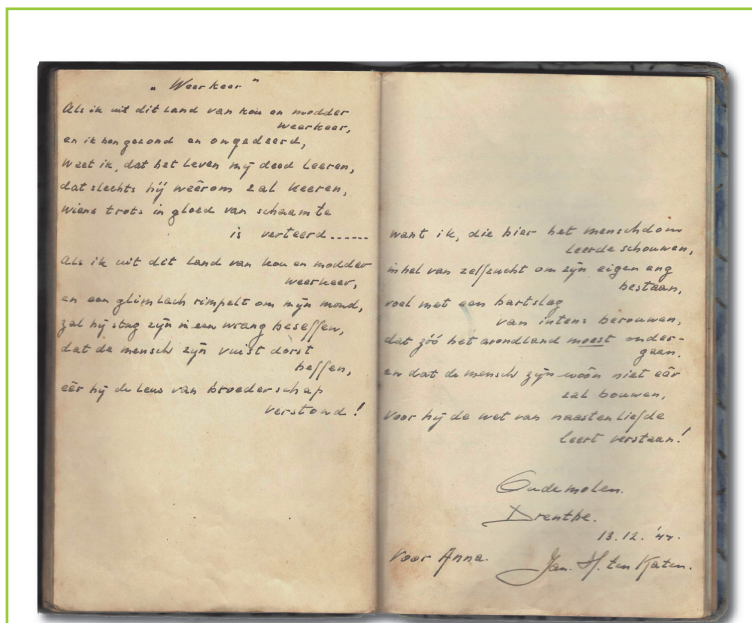 „ Weerkeer "
Als ik uit dit land van kou en modder
weerkeer,
en ik ben gezond en ongedeerd,
weet ik, dat het leven mij deed leeren,
dat slechts hij weêrom zal keeren,
wiens trots in gloed van schaamte
is verteerd......
Als ik uit dit land van kou en modder
weerkeer,
en een glimlach rimpelt om mijn mond,
zal hij stug zijn in een wrang beseffen,
dat de mensch zijn vuist dorst
heffen,
eêr hij de leus van broederschap
verstond!
want ik, die hier het menschdom
leerde schouwen,
in hel van zelfzucht om zijn eigen eng
bestaan,
voel met een hartslag
van intens berouwen,
dat zóó het avondland moest onder-
gaan.
en dat de mensch zijn woôn niet eêr
zal bouwen,
voor hij de wet van naastenliefde
leert verstaan!
Oudemolen.
Drenthe.
13.12.'44.
Voor Anna.
Jan. H. ten Katen.